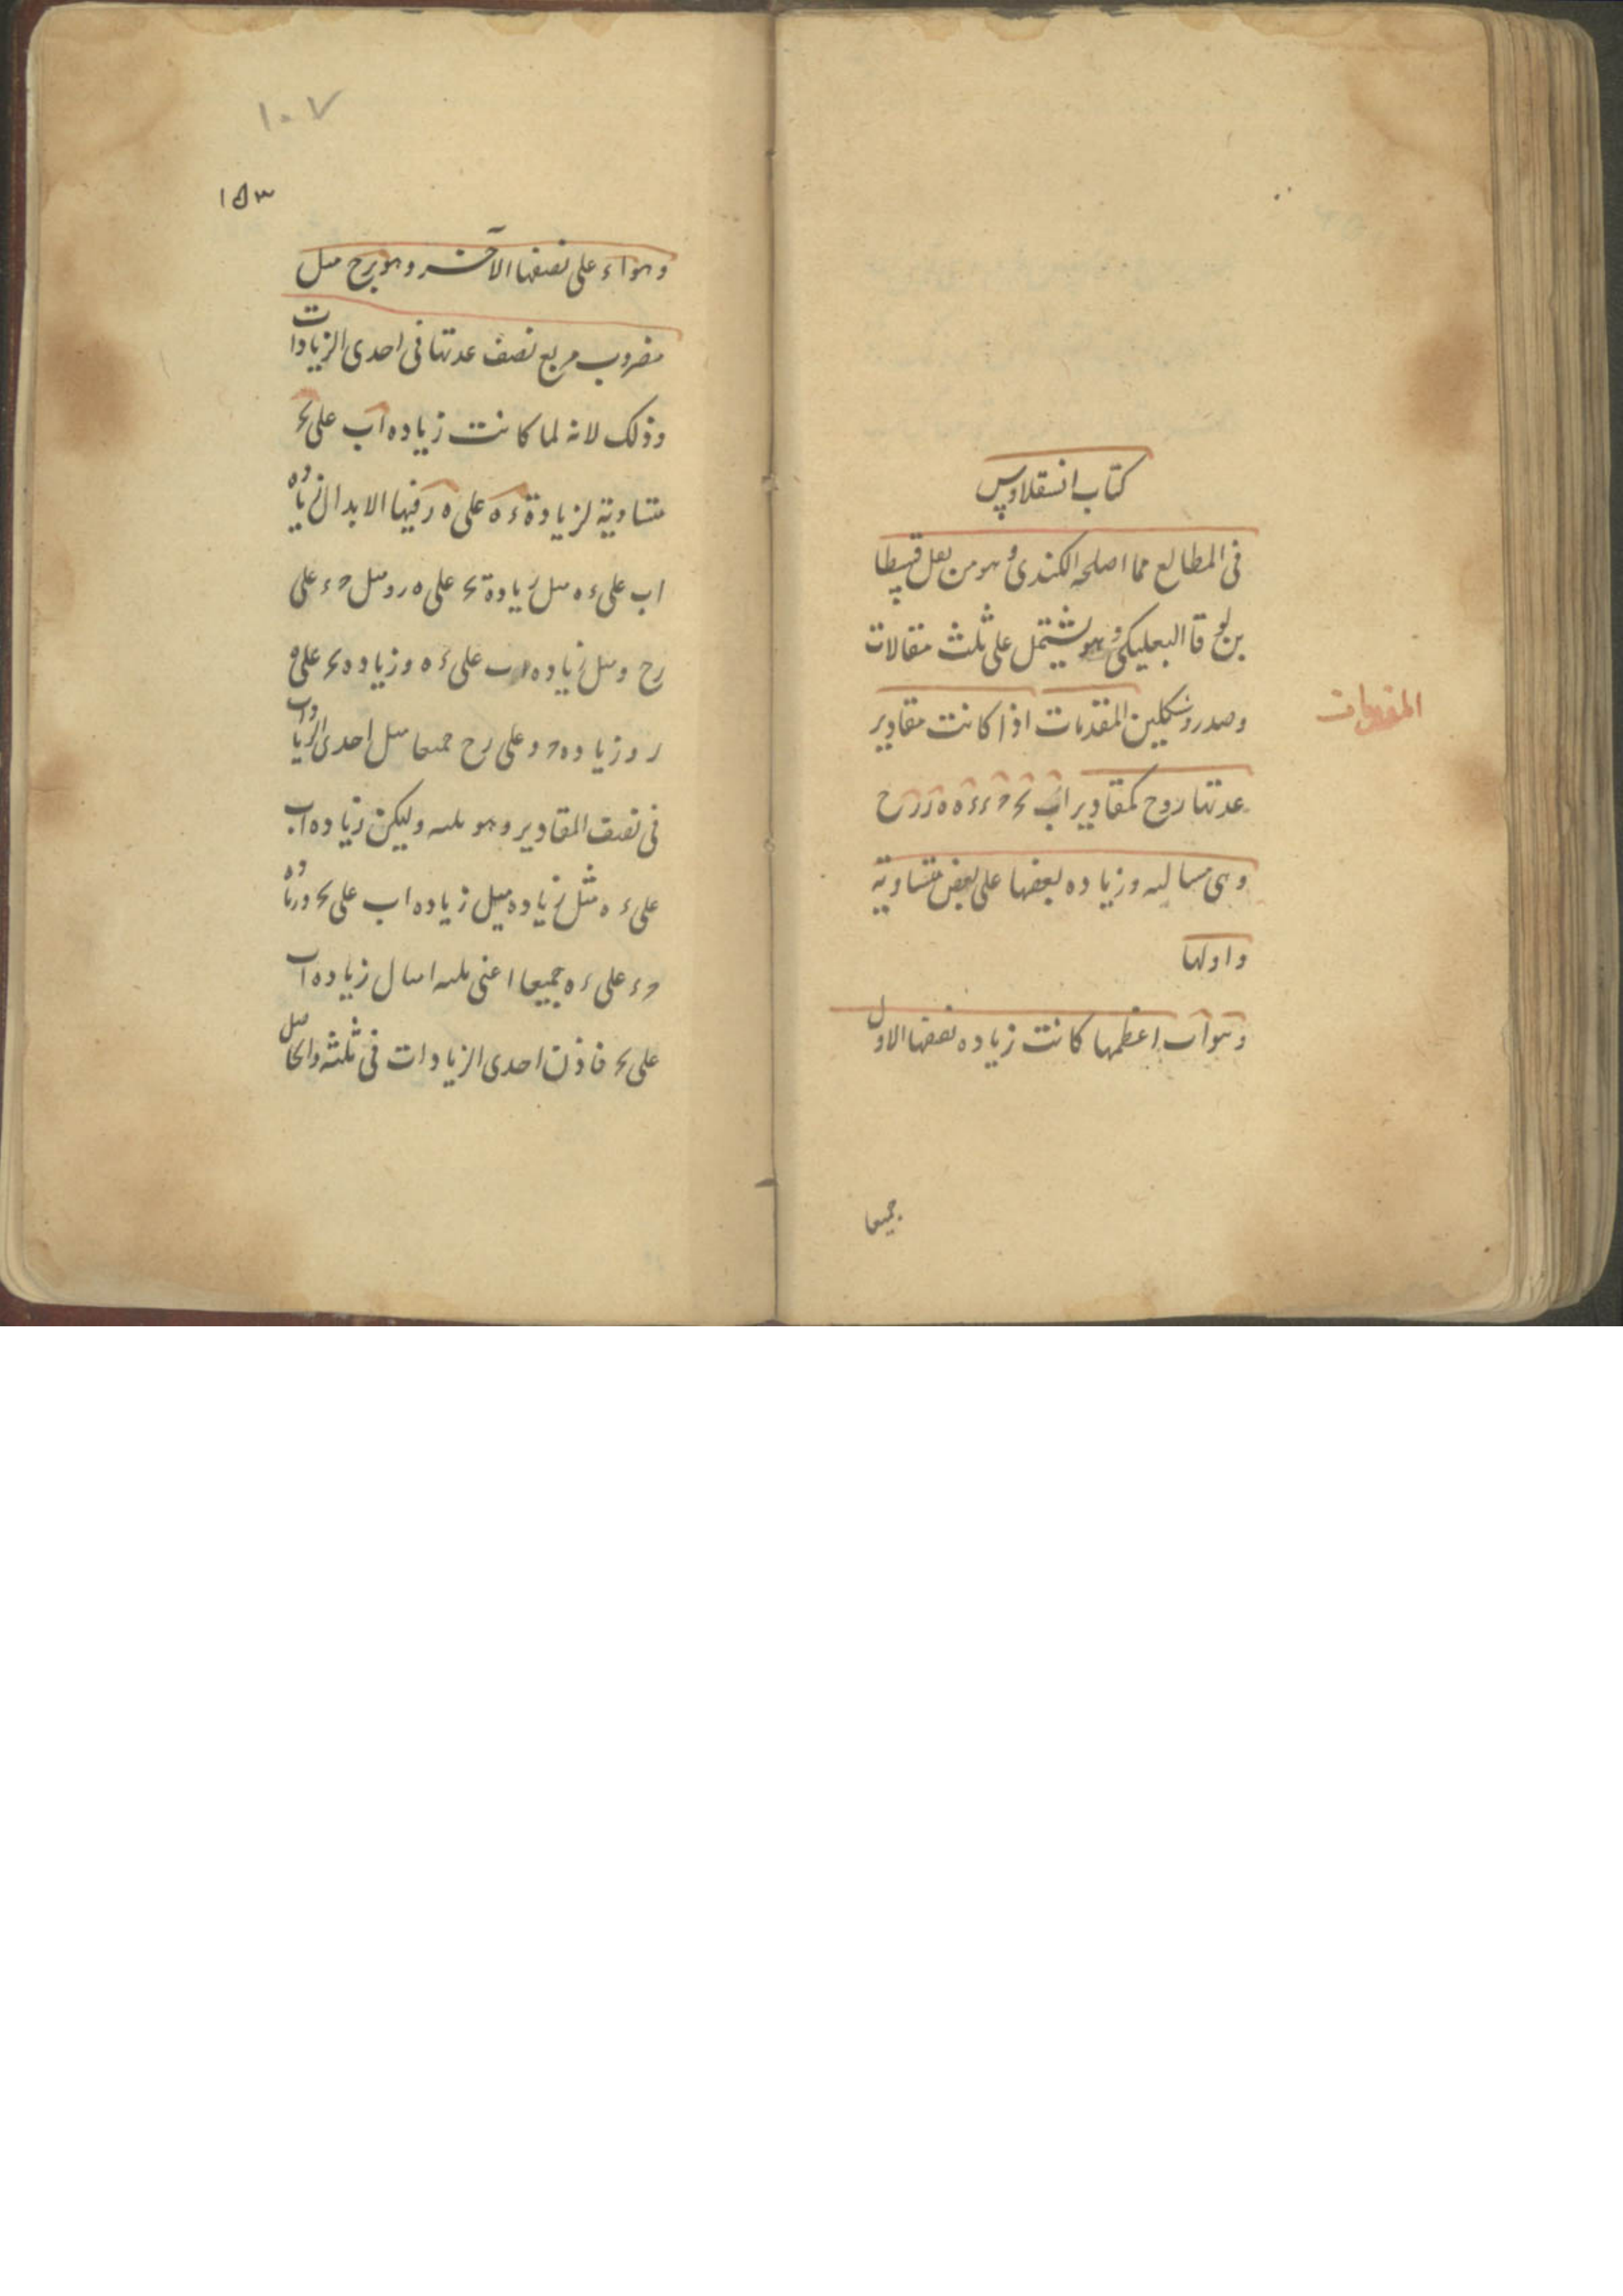 كتاب انسقلاوس
فى المطالع مما اصلحه الكندى وهو من نقل قسطا
بن لوقا البعلبكى وهو يشتمل على ثلث مقالات
وصدر وشكلين المقدمات اذا كانت مقادير
المقدمات
عدتها زوج كمقادير اب
وهى متتاليه وزياده بعضها على بعض متساوية
واولها
وهو اب اعظمها كانت زياده نصفها الاول
جميعا
١٠٧
١٥٣
وهو ا ء على نصفها الآخر وهو ء ح مثل
مضروب مربع نصف عدتها فى احدى الزيادات
وذلك لانه لما كانت زياده اب على
متساوية لزيادة ء ه على ه ر
اب على ء ه مثل زيادة على ه ر ومثل ء على
رح ومثل زياده اب على ء ه وزياده على ه
ر وزياده على رح جميعا مثل احدى الزيادات
فى نصف المقادير وهو ثلثه وليكن زياده اب
على ء ه مثل زياده مثل زياده اب على وزياده
ء على ء ه جميعا اعنى ثلثه امثال زياده اب
على فاذن احدى الزيادات فى ثلثه والحاصل